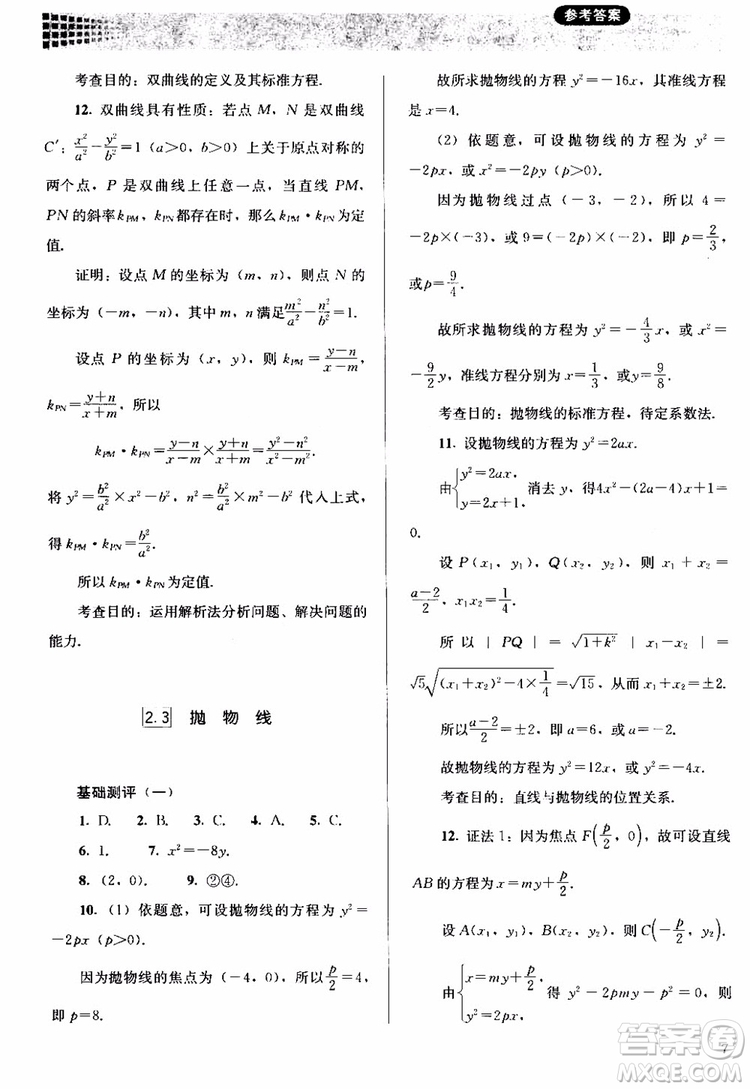 参考答案
考查目的：双曲线的定义及其标准方程.
12. 双曲线具有性质：若点 M，N 是双曲线
C′：x²/a²−y²/b²=1 (a>0，b>0) 上关于原点对称的
两个点，P 是双曲线上任意一点，当直线 PM，
PN 的斜率 k_PM，k_PN 都存在时，那么 k_PM·k_PN 为定
值.
证明：设点 M 的坐标为 (m，n)，则点 N 的
坐标为 (−m，−n)，其中 m，n 满足 m²/a²−n²/b²=1.
设点 P 的坐标为 (x，y)，则 k_PM=(y−n)/(x−m)，
k_PN=(y+n)/(x+m)，所以
k_PM·k_PN=(y−n)/(x−m)×(y+n)/(x+m)=(y²−n²)/(x²−m²).
将 y²=b²/a²×x²−b²，n²=b²/a²×m²−b² 代入上式，
得 k_PM·k_PN=b²/a².
所以 k_PM·k_PN 为定值.
考查目的：运用解析法分析问题、解决问题的
能力.
2.3 抛物线
基础测评（一）
1. D. 2. B. 3. C. 4. A. 5. C.
6. 1. 7. x²=−8y.
8. (2，0). 9. ②④.
10. (1) 依题意，可设抛物线的方程为 y²=
−2px (p>0).
因为抛物线的焦点为 (−4，0)，所以 p/2=4，
即 p=8.
故所求抛物线的方程 y²=−16x，其准线方程
是 x=4.
(2) 依题意，可设抛物线的方程为 y²=
−2px，或 x²=−2py (p>0).
因为抛物线过点 (−3，−2)，所以 4=
−2p×(−3)，或 9=−2p×(−2)，即 p=2/3，
或 p=9/4.
故所求抛物线的方程为 y²=−4/3x，或 x²=
−9/2y，准线方程分别为 x=1/3，或 y=9/8.
考查目的：抛物线的标准方程，待定系数法.
11. 设抛物线的方程为 y²=2ax.
由{y²=2ax，y=2x+1. 消去 y，得4x²−(2a−4)x+1=
0.
设 P(x₁，y₁)，Q(x₂，y₂)，则 x₁+x₂=
(a−2)/2，x₁x₂=1/4.
所以 |PQ|=√(1+k²) |x₁−x₂|=
√5√((x₁+x₂)²−4×1/4)=√15，x₁+x₂=±2.
所以(a−2)/2=±2，即 a=6，或 a=−2.
故抛物线的方程为 y²=12x，或 y²=−4x.
考查目的：直线与抛物线的位置关系.
12. 证法 1：因为焦点 F(p/2，0)，故可设直线
AB 的方程为 x=my+p/2.
设 A(x₁，y₁)，B(x₂，y₂)，则 C(−p/2，y₂).
由{x=my+p/2，y²=2px， 得 y²−2pmy−p²=0，
7
MXQE.COM